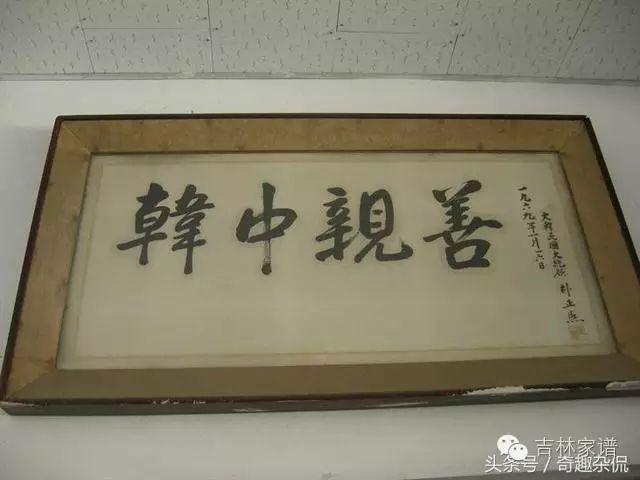 韓中親善
一九六九年一月一六日
大韓民國大統領 朴正熙
吉林家谱
头条号 / 奇趣杂侃